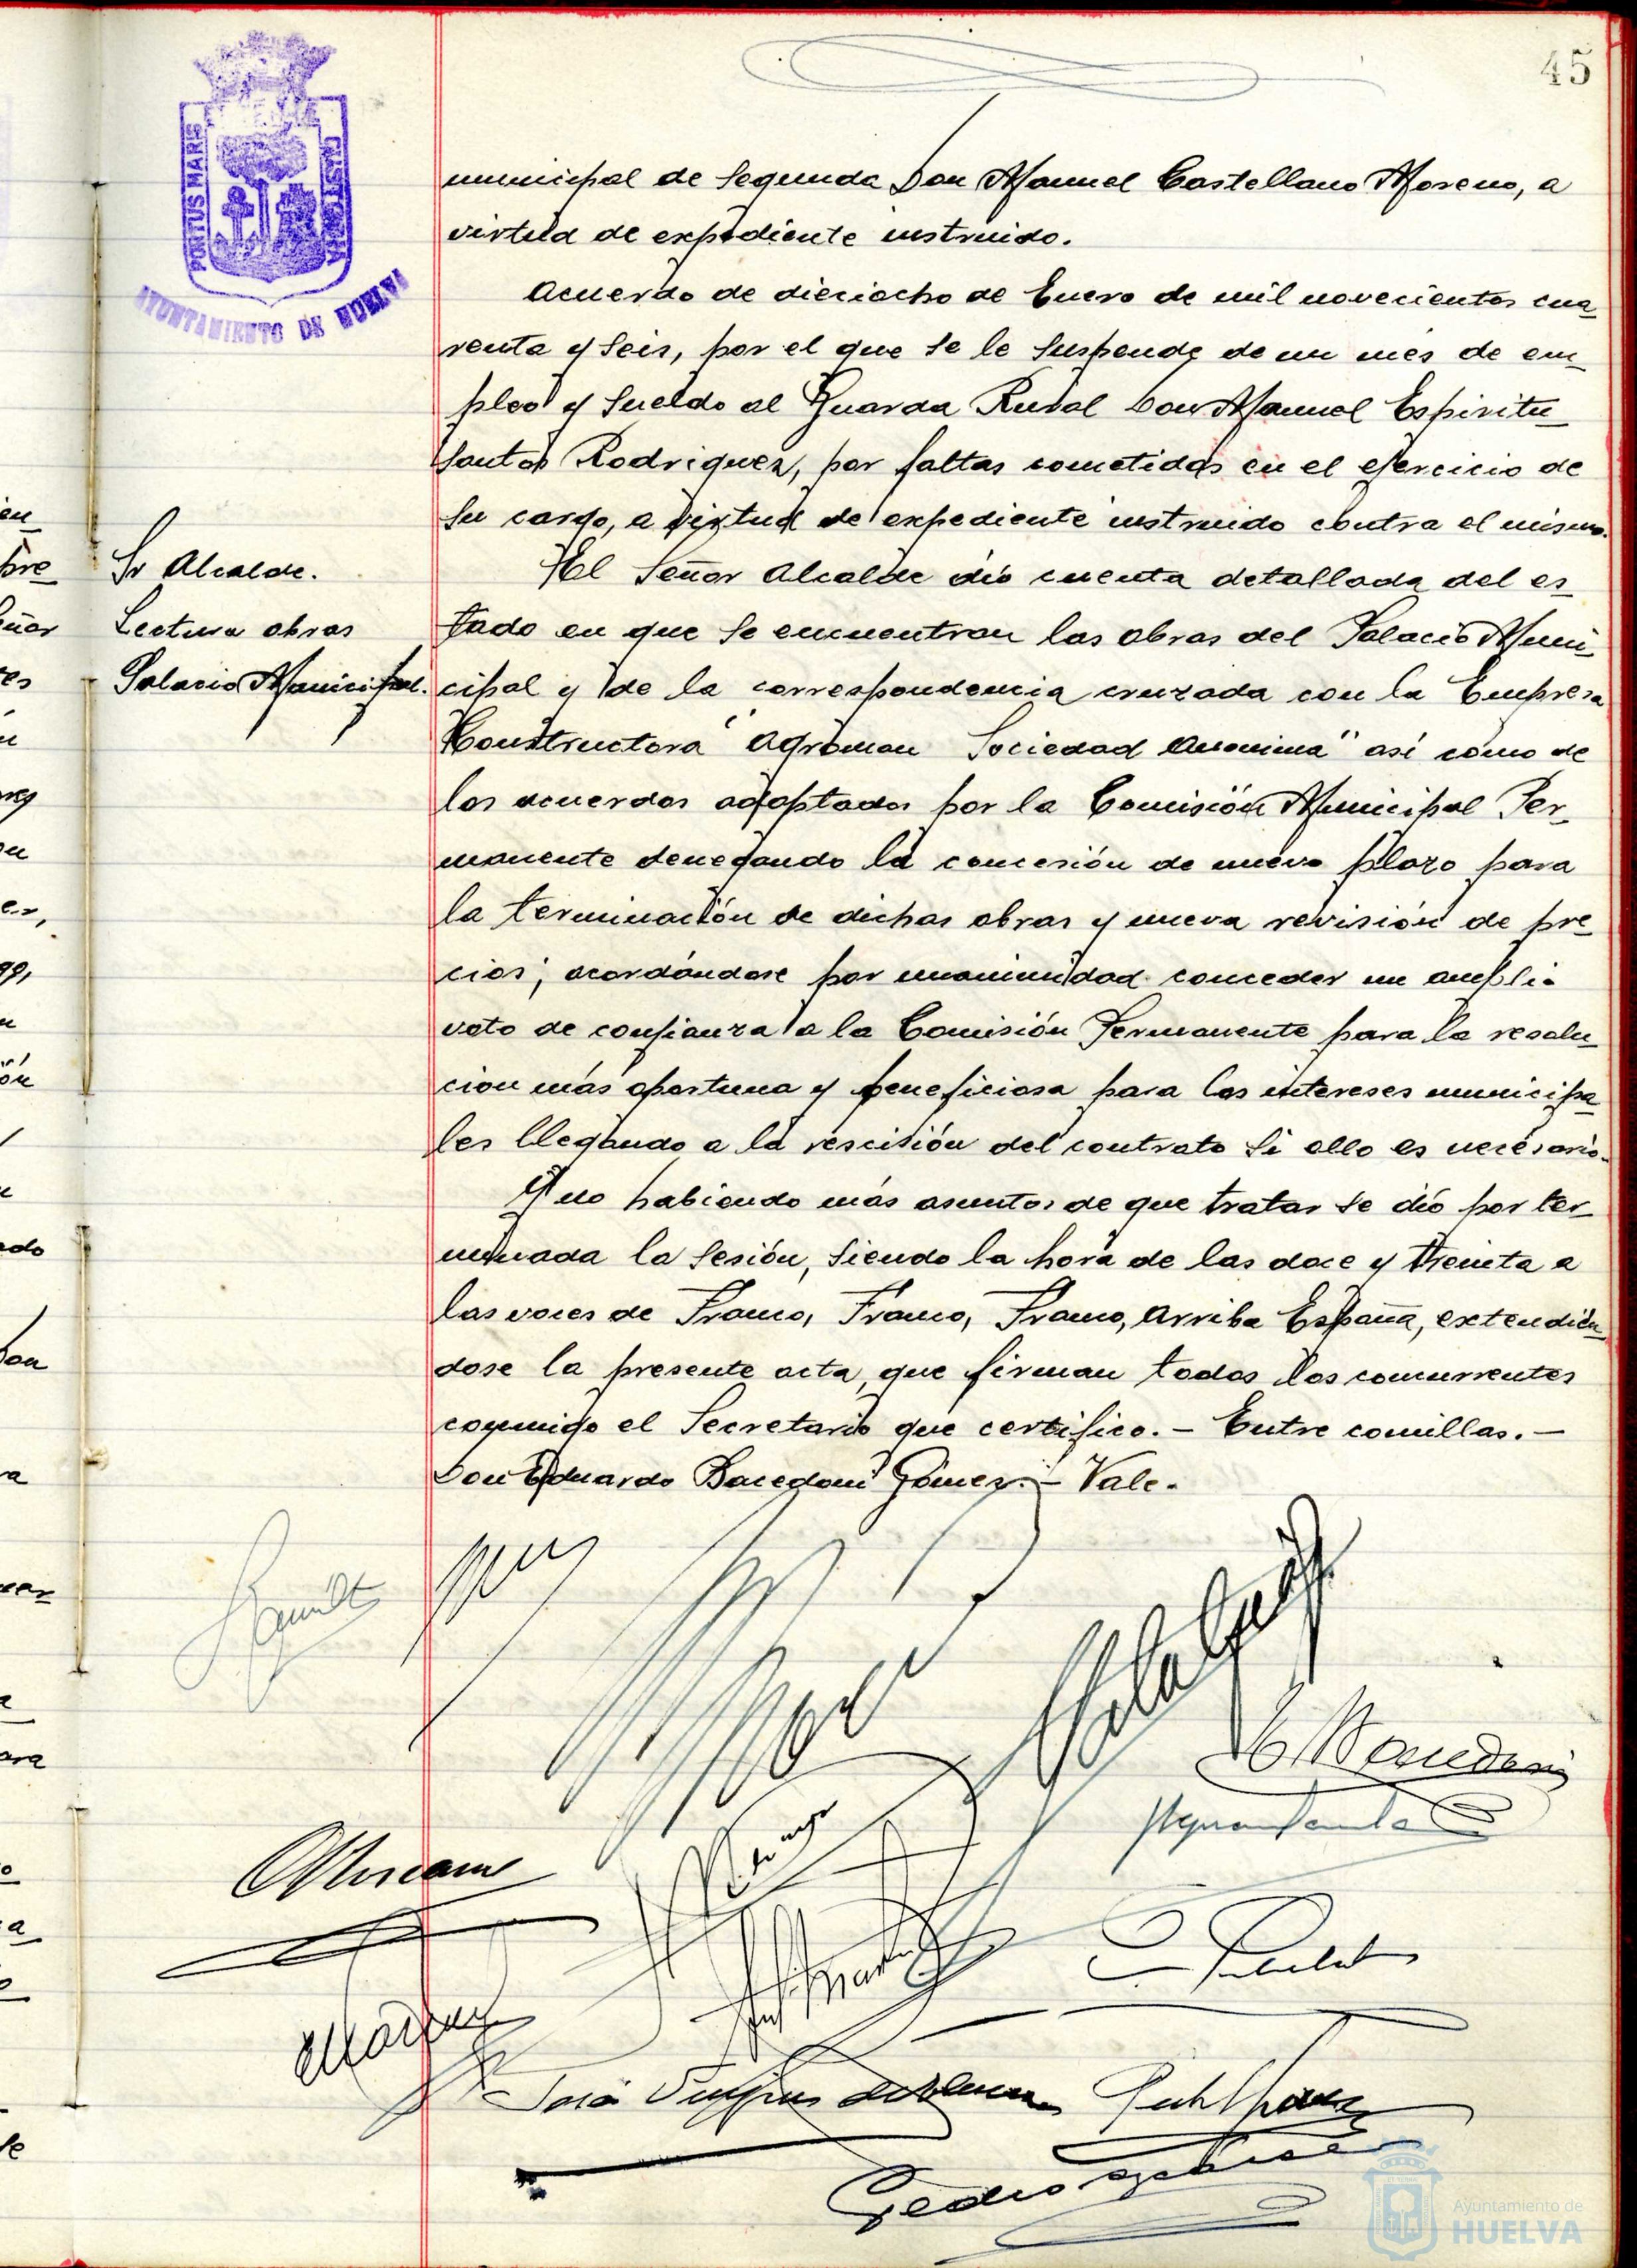 45
PORTUS MARIS
ET TERRAE CUSTODIA
AYUNTAMIENTO DE HUELVA
municipal de Segunda Don Manuel Castellano Moreno, a
virtud de expediente instruido.
Acuerdo de dieciocho de Enero de mil novecientos cua
renta y seis, por el que se le suspende de un mes de em
pleo y sueldo al Guarda Rural Don Manuel Espiritu
Santo Rodriguez, por faltas cometidas en el ejercicio de
su cargo, a virtud de expediente instruido contra el mismo.
Sr Alcalde.
Lectura obras
Palacio Municipal.
El Señor Alcalde dió cuenta detallada del es
tado en que se encuentran las obras del Palacio Muni
cipal y de la correspondencia cruzada con la Empresa
Constructora "Agroman Sociedad Anonima" así como de
los acuerdos adoptados por la Comisión Municipal Per
manente denegando la concesión de nuevo plazo para
la terminación de dichas obras y nueva revisión de pre
cios; acordándose por unanimidad conceder un amplio
voto de confianza a la Comisión Permanente para la resolu
cion más oportuna y beneficiosa para los intereses municipa
les llegando a la rescisión del contrato si ello es necesario.
Y no habiendo más asuntos de que tratar se dió por ter
minada la sesión, siendo la hora de las doce y treinta a
las voces de Franco, Franco, Franco, Arriba España, extendién
dose la presente acta, que firman todos los concurrentes
conmigo el Secretario que certifico.- Entre comillas.-
Don Eduardo Bacedoni Gómez.- Vale.
Ayuntamiento de
HUELVA